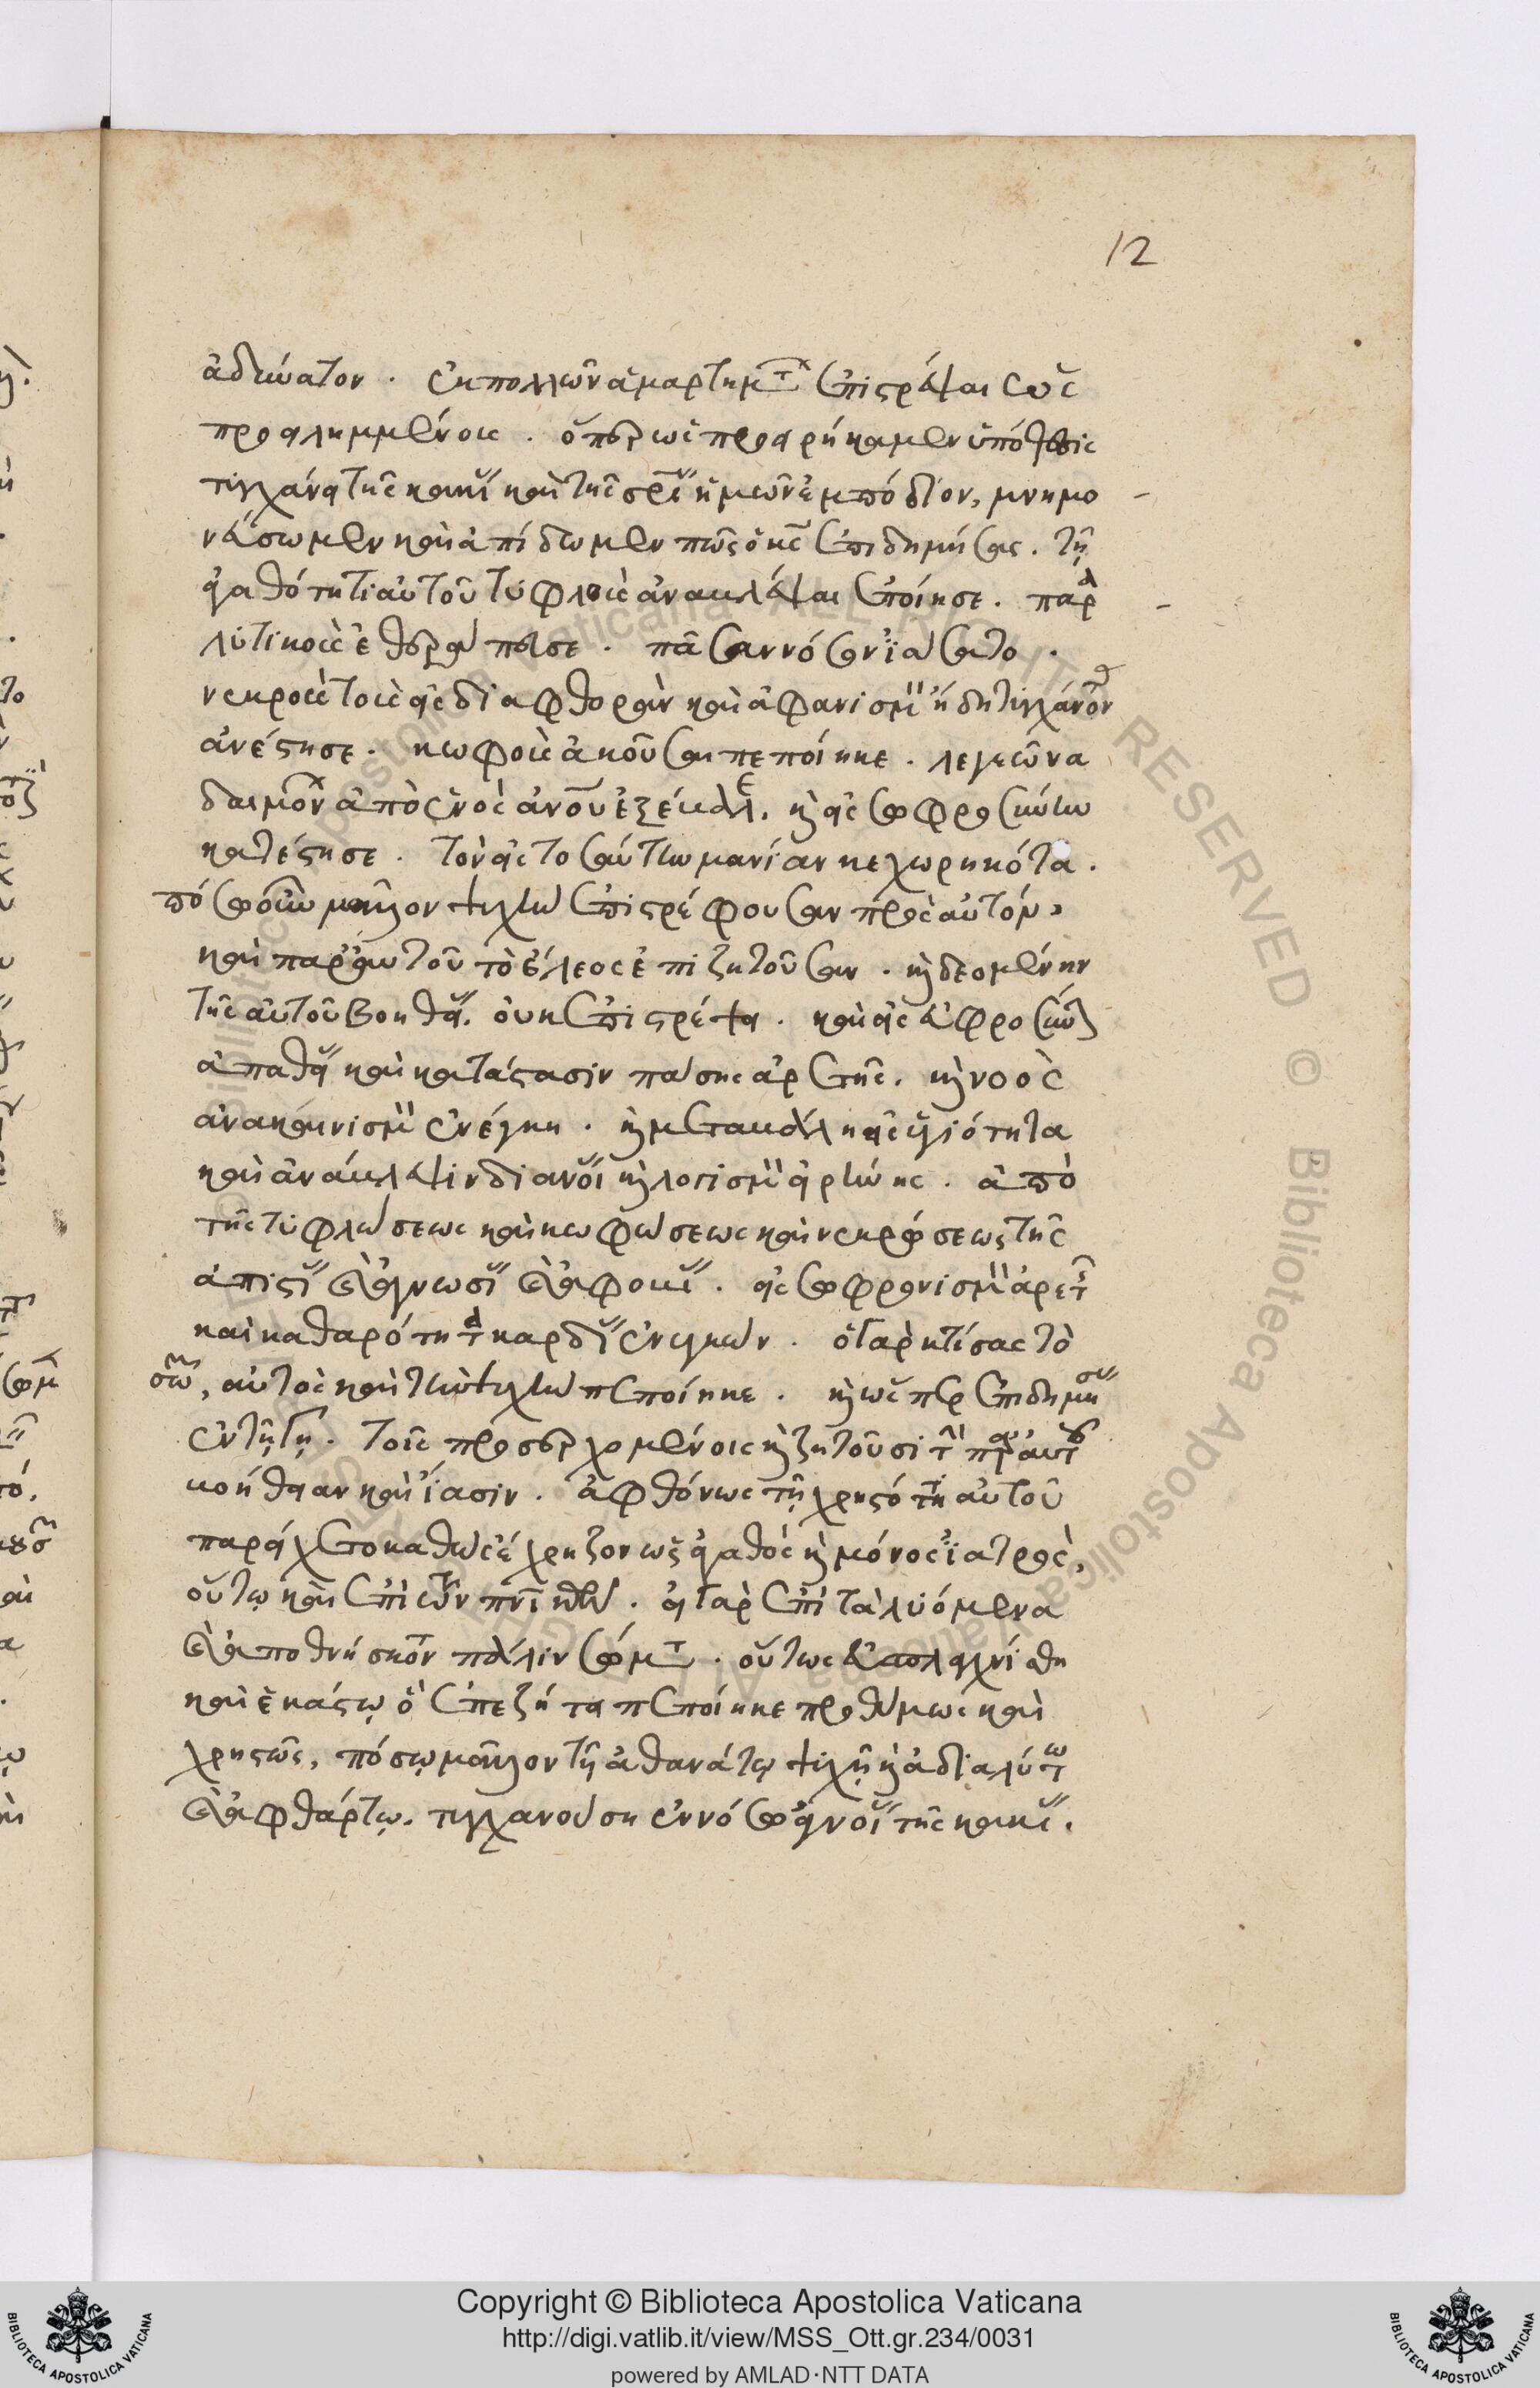 12
ἀδύνατον. ἐκ πολλῶν ἁμαρτημάτων ἐπιστρέψαι τοὺς
προειλημμένους. ὅπερ ὡς προειρήκαμεν ὑπόθεσις
τυγχάνει τῆς κακίας καὶ τῆς σωτηρίας ἡμῶν ἐμπόδιον, μνημο
νεύσωμεν καὶ ἀπίδωμεν πῶς ὁ κς ἐπιδημήσας. τῇ
ἀγαθότητι αὐτοῦ τυφλοὺς ἀναβλέψαι ἐποίησε. παρα
λυτικοὺς ἐθεράπευσε. πᾶσαν νόσον ἰάσατο.
νεκροὺς τοὺς εἰς διαφθορὰν καὶ ἀφανισμὸν ἤδη τυγχάνοντας
ἀνέστησε. κωφοὺς ἀκοῦσαι πεποίηκε. λεγεῶνα
δαιμόνων ἀπὸ ἑνὸς ἀνου ἐξέβαλε. καὶ εἰς σωφροσύνην
κατέστησε. τὸν εἰς τοσαύτην μανίαν κεχωρηκότα.
πόσῳ οὖν μᾶλλον ψυχὴν ἐπιστρέφουσαν πρὸς αὐτόν,
καὶ παρ' αὐτοῦ τὸ ἔλεος ἐπιζητοῦσαν. καὶ δεομένην
τῆς αὐτοῦ βοηθείας. οὐκ ἐπιστρέψει. καὶ εἰς εὐφροσύνην
ἀπαθείας καὶ κατάστασιν πάσης ἀρετῆς. καὶ νοὸς
ἀνακαινισμὸν ἐνέγκῃ. καὶ μεταβάλλῃ εἰς ἁγιότητα
καὶ ἀνάβλεψιν διανοίας καὶ λογισμὸν εἰρήνης. ἀπὸ
τῆς τυφλώσεως καὶ κωφώσεως καὶ νεκρώσεως τῆς
ἀπιστίας καὶ ἀγνωσίας καὶ ἀφοβίας. εἰς σωφρονισμὸν ἀρετῆς
καὶ καθαρότητα καρδίας ἐνεγκών. ὁ γὰρ κτίσας τὸ
σῶμα, αὐτὸς καὶ τὴν ψυχὴν πεποίηκε. καὶ ὥσπερ ἐπιδημήσας
ἐν τῇ γῇ. τοῖς προσερχομένοις καὶ ζητοῦσι τὴν παρ' αὐτοῦ
βοήθειαν καὶ ἴασιν. ἀφθόνως τῇ χρηστότητι αὐτοῦ
παρείχετο καθὼς ἔχρῃζον ὡς ἀγαθὸς καὶ μόνος ἰατρός,
οὕτω καὶ ἐπὶ τῶν πνευματικῶν. εἰ γὰρ ἐπὶ τὰ λυόμενα
καὶ ἀποθνήσκοντα πάλιν σώματα. οὕτως εὐσπλαγχνίσθη
καὶ ἑκάστῳ ὃ ἐπεζήτει πεποίηκε προθύμως καὶ
χρηστῶς, πόσῳ μᾶλλον τῇ ἀθανάτῳ ψυχῇ καὶ ἀδιαλύτῳ
καὶ ἀφθάρτῳ. τυγχανούσῃ ἐν νόσῳ ἀγνοίας τῆς κακίας.
Copyright © Biblioteca Apostolica Vaticana
http://digi.vatlib.it/view/MSS_Ott.gr.234/0031
powered by AMLAD·NTT DATA